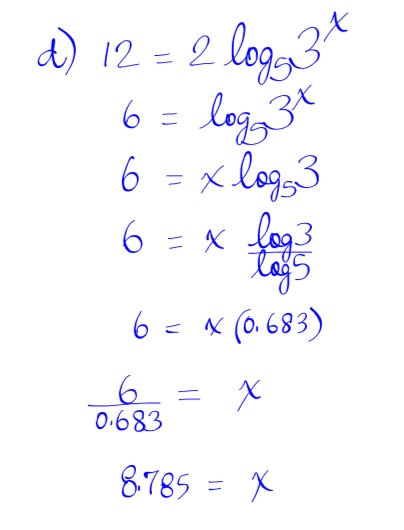 d) 12 = 2 log₅3ˣ
6 = log₅3ˣ
6 = x log₅3
6 = x log3/log5
6 = x (0.683)
6/0.683 = x
8.785 = x